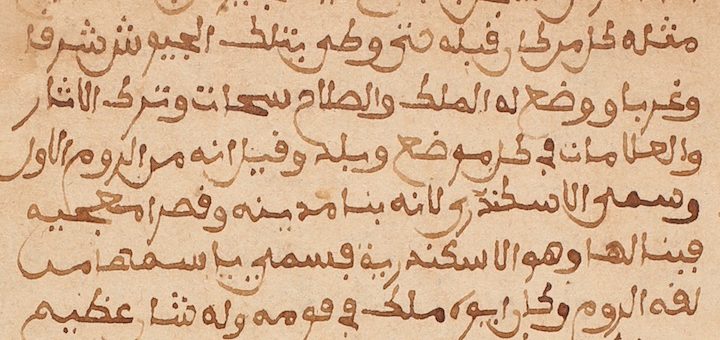 مثله كل من كان قبله حتى وطى بتلك الجيوش شرقا
وغربا ووضع له الملك والصلاح سحات وترك الاثار
والعلامات في كل موضع وبلد وقيل انه من الروم الاول
وسمى الاسكندري لانه بنا مدينه وقصرا معجبه
فيقال لها وهو الاسكندرية فسمي باسمها من
لغه الروم وكان ابوه ملك في قومه وله شان عظيم